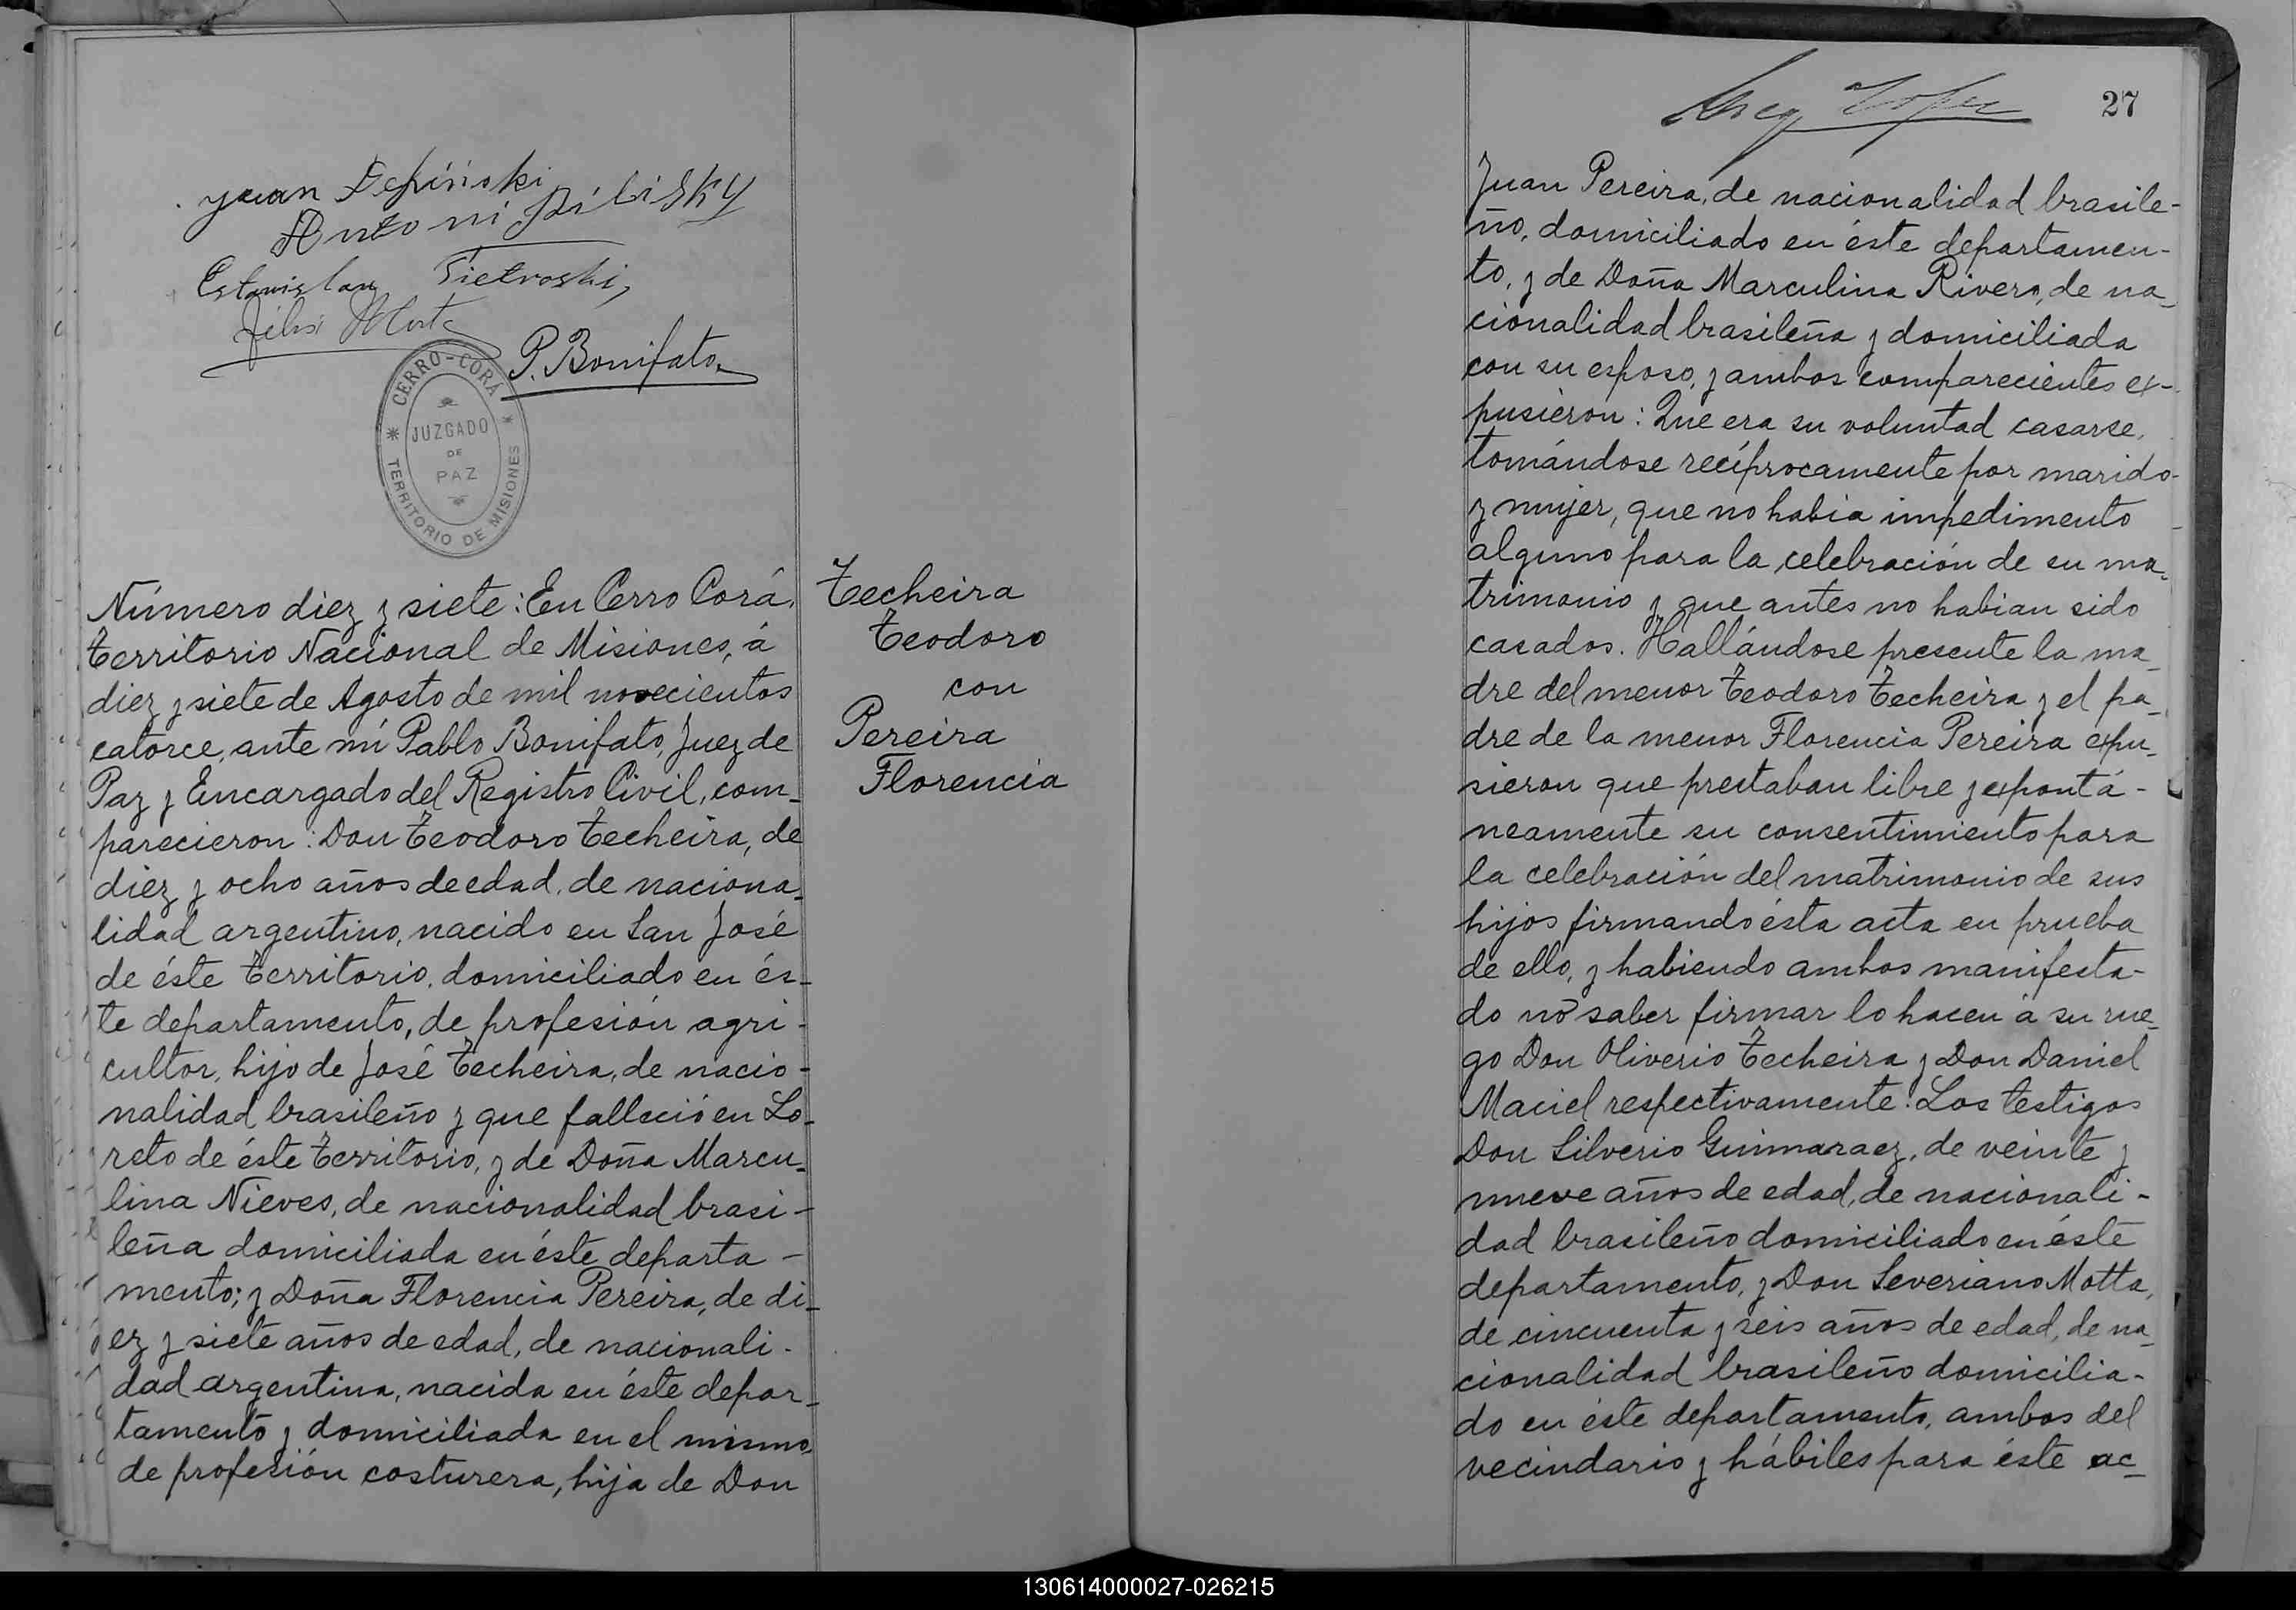 Juan
Antoni
Estanislau Pietroski,
P. Bonifato
CERRO-CORÁ
JUZGADO
DE
PAZ
TERRITORIO DE MISIONES
Número diez y siete: En Cerro Corá,
territorio Nacional de Misiones, á
diez y siete de Agosto de mil novecientos
catorce, ante mí Pablo Bonifato, Juez de
Paz y Encargado del Registro Civil, com-
parecieron: Don Teodoro Techeira, de
diez y ocho años de edad, de naciona-
lidad argentino, nacido en San José
de éste territorio, domiciliado en és-
te departamento, de profesión agri-
cultor, hijo de José Techeira, de nacio-
nalidad brasileño y que falleció en Lo-
reto de éste territorio, y de Doña Marcu-
lina Nieves, de nacionalidad brasi-
leña domiciliada en éste departa-
mento; y Doña Florencia Pereira, de di-
ez y siete años de edad, de nacionali-
dad argentina, nacida en éste depar-
tamento y domiciliada en el mismo,
de profesión costurera, hija de Don
Techeira
Teodoro
con
Pereira
Florencia
27
Juan Pereira, de nacionalidad brasile-
ño, domiciliado en éste departamen-
to, y de Doña Marculina Rivero, de na-
cionalidad brasileña y domiciliada
con su esposo, y ambos comparecientes ex-
pusieron: Que era su voluntad casarse,
tomándose recíprocamente por marido
y mujer, que no había impedimento
alguno para la celebración de su ma-
trimonio y que antes no habian sido
casados. Hallándose presente la ma-
dre del menor Teodoro Techeira y el pa-
dre de la menor Florencia Pereira expu-
sieron que prestaban libre y expontá-
neamente su consentimiento para
la celebración del matrimonio de sus
hijos firmando ésta acta en prueba
de ello, y habiendo ambos manifesta-
do no saber firmar lo hacen á su rue-
go Don Oliverio Techeira y Don Daniel
Maciel respectivamente. Los testigos
Don Silverio Guimaraez, de veinte y
nueve años de edad, de nacionali-
dad brasileño domiciliado en éste
departamento, y Don Severiano Motta,
de cincuenta y seis años de edad, de na-
cionalidad brasileño domicilia-
do en éste departamento, ambos del
vecindario y hábiles para éste ac-
130614000027-026215